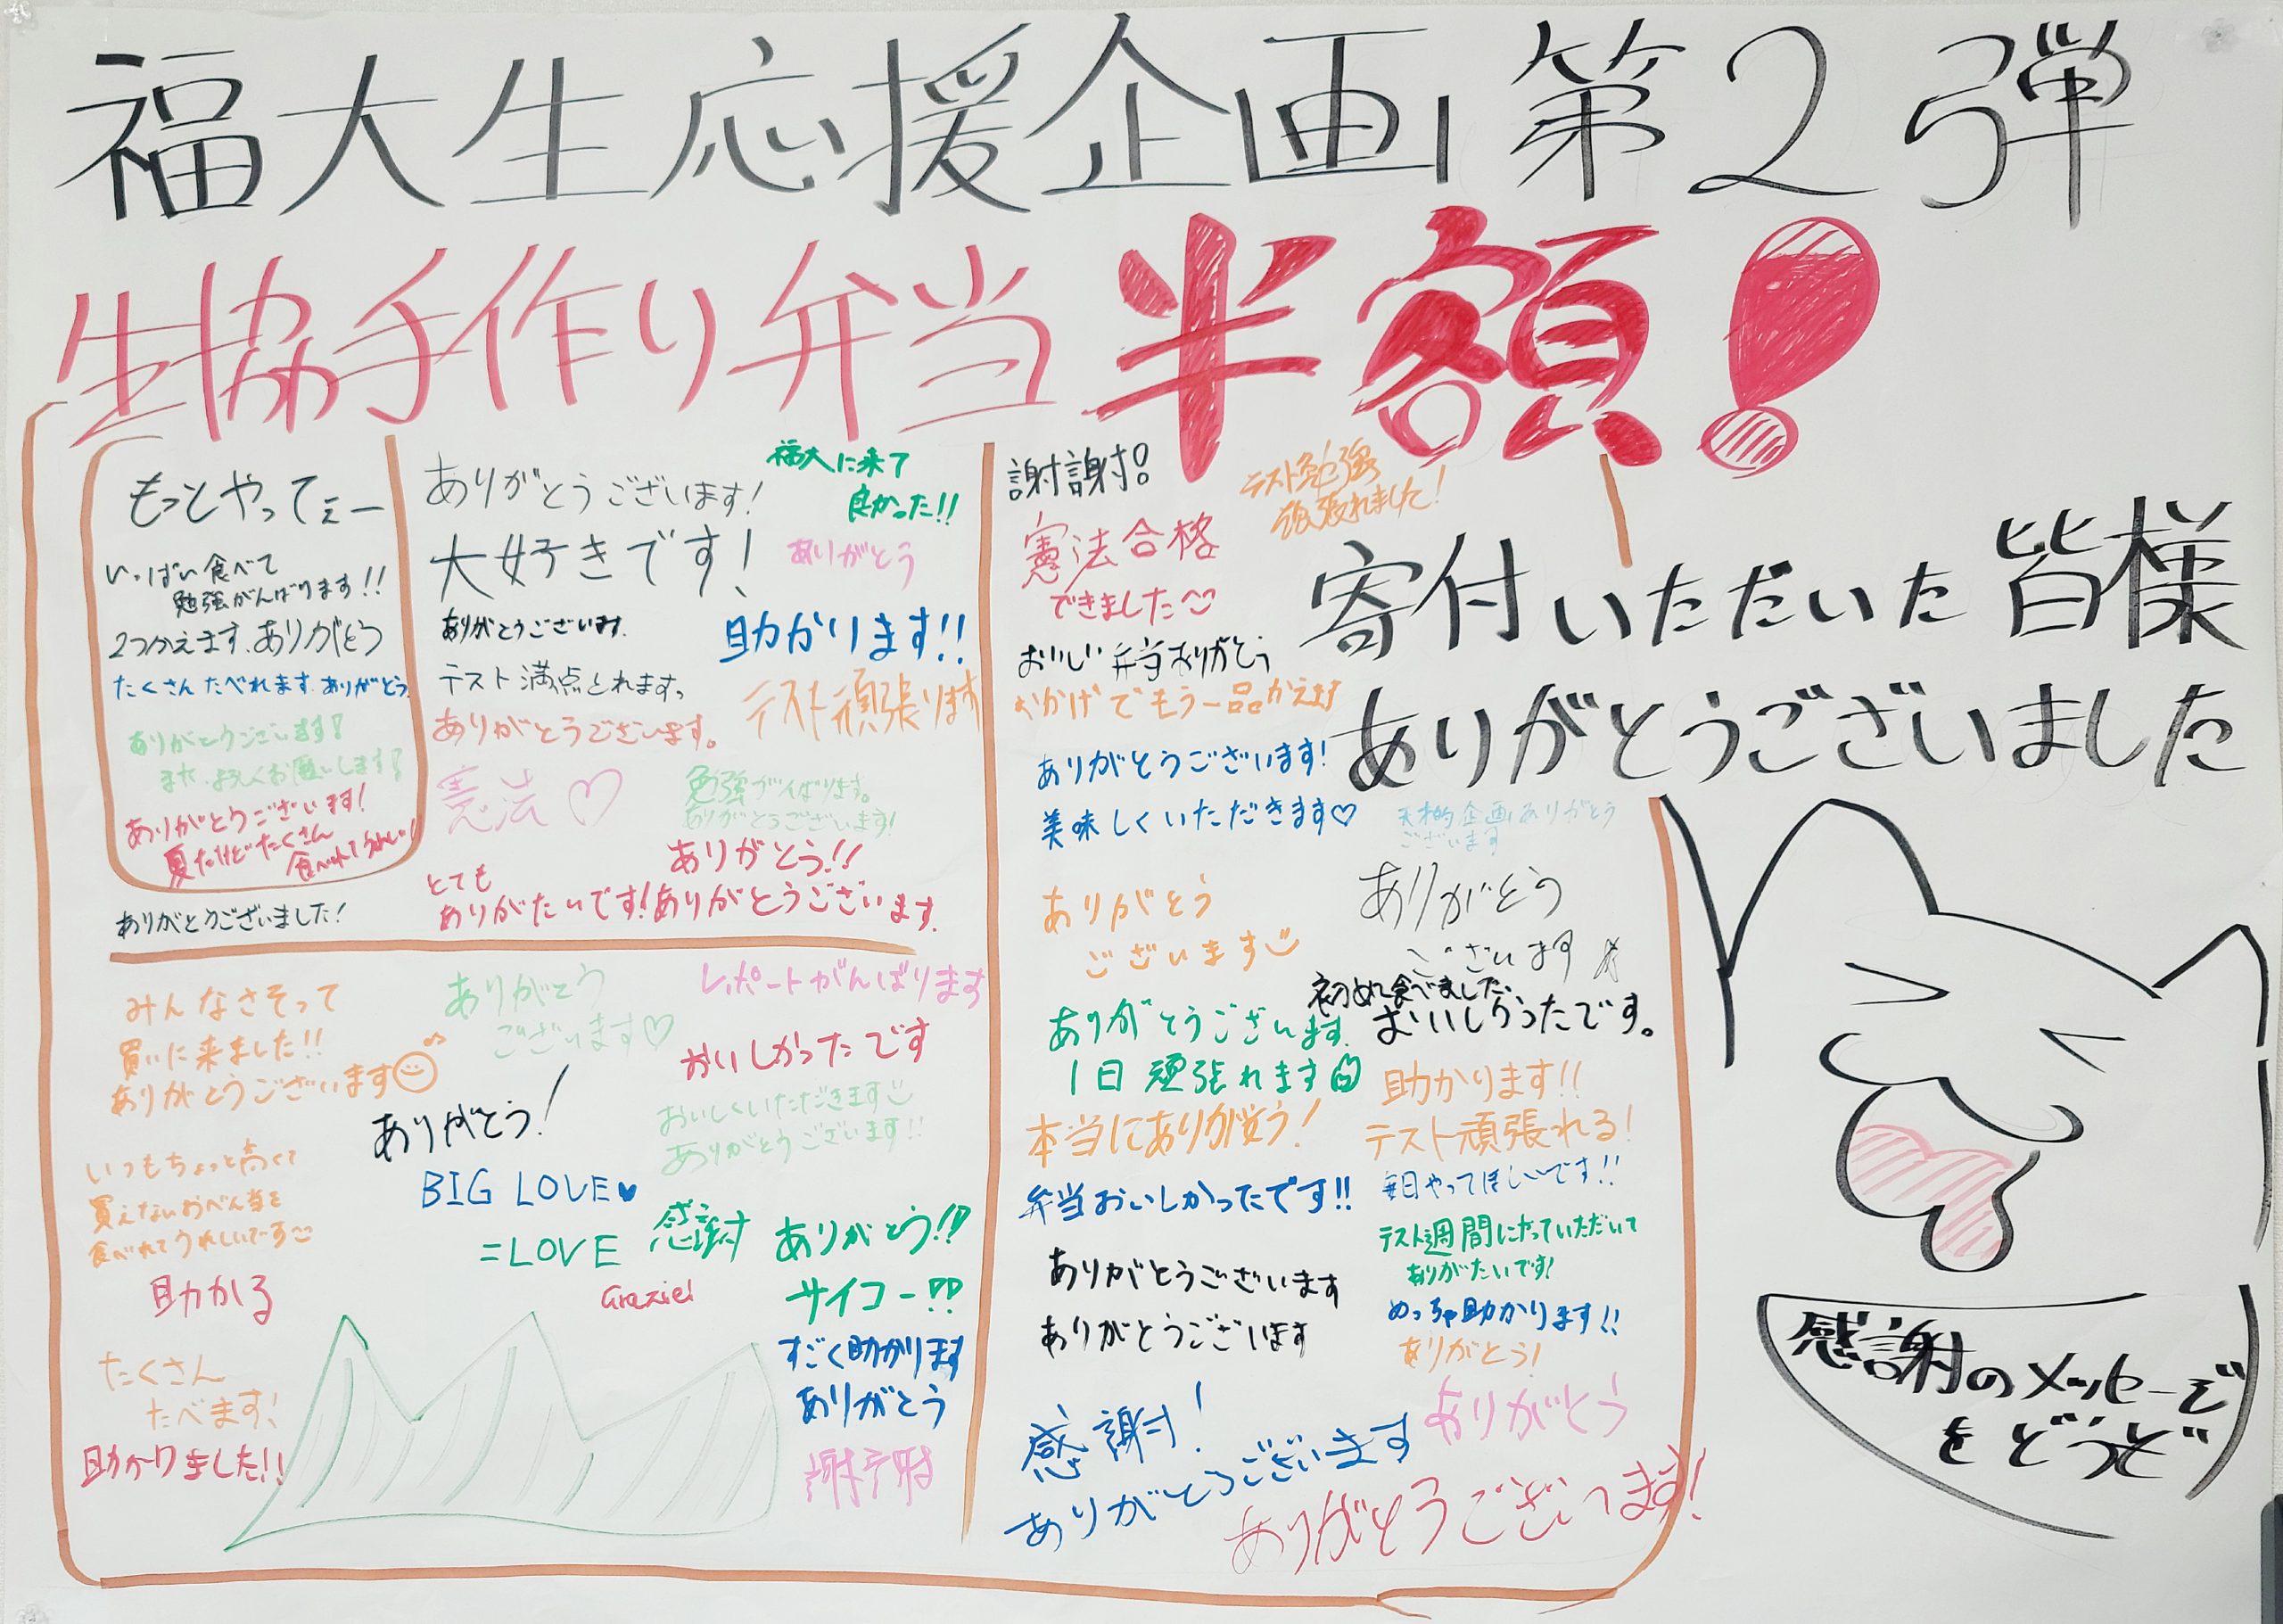 福大生応援企画第2弾
生協手作り弁当半額!
寄付いただいた皆様
ありがとうございました
感謝のメッセージ
をどうぞ
もっとやってぇー
いっぱい食べて
勉強がんばります!!
2つかえます。ありがとう
たくさんたべれます。ありがとう。
ありがとうございます!
また、よろしくお願いします!
ありがとうございます!
夏だけどたくさん
食べれてうれしい!
ありがとうございました!
ありがとうございます!
大好きです!
ありがとうございます。
テスト満点とれますっ
ありがとうございます。
憲法♡
とても
ありがたいです!
福大に来て
良かった!!
ありがとう
助かります!!
テスト頑張ります
勉強がんばります。
ありがとうございます!
ありがとう!!
ありがとうございます。
みんなさそって
買いに来ました!!
ありがとうございます
いつもちょっと高くて
買えないおべん当を
食べれてうれしいです
助かる
たくさん
たべます!
助かりました!!
ありがとう
ございます♡
ありがとう!
BIG LOVE♥
=LOVE
感謝
Grazie!
レポートがんばります
おいしかったです
おいしくいただきます
ありがとうございます!!
ありがとう!!
サイコー!!
すごく助かります
ありがとう
謝謝
謝謝!
テスト勉強
頑張れました!
憲法合格
できました
おいしい弁当ありがとう
おかげでもう一品かえます
ありがとうございます!
美味しくいただきます♡
天才的企画ありがとう
ございます
ありがとう
ございます
ありがとう
ございます
初めて食べました。
おいしかったです。
ありがとうございます。
1日頑張れます
助かります!!
テスト頑張れる!
本当にありがとう!
毎日やってほしいです!!
弁当おいしかったです!!
テスト週間にやっていただいて
ありがたいです!
めっちゃ助かります!!
ありがとう!
ありがとうございます
ありがとうございます
ありがとう
感謝!
ありがとうございます
ありがとうございます!